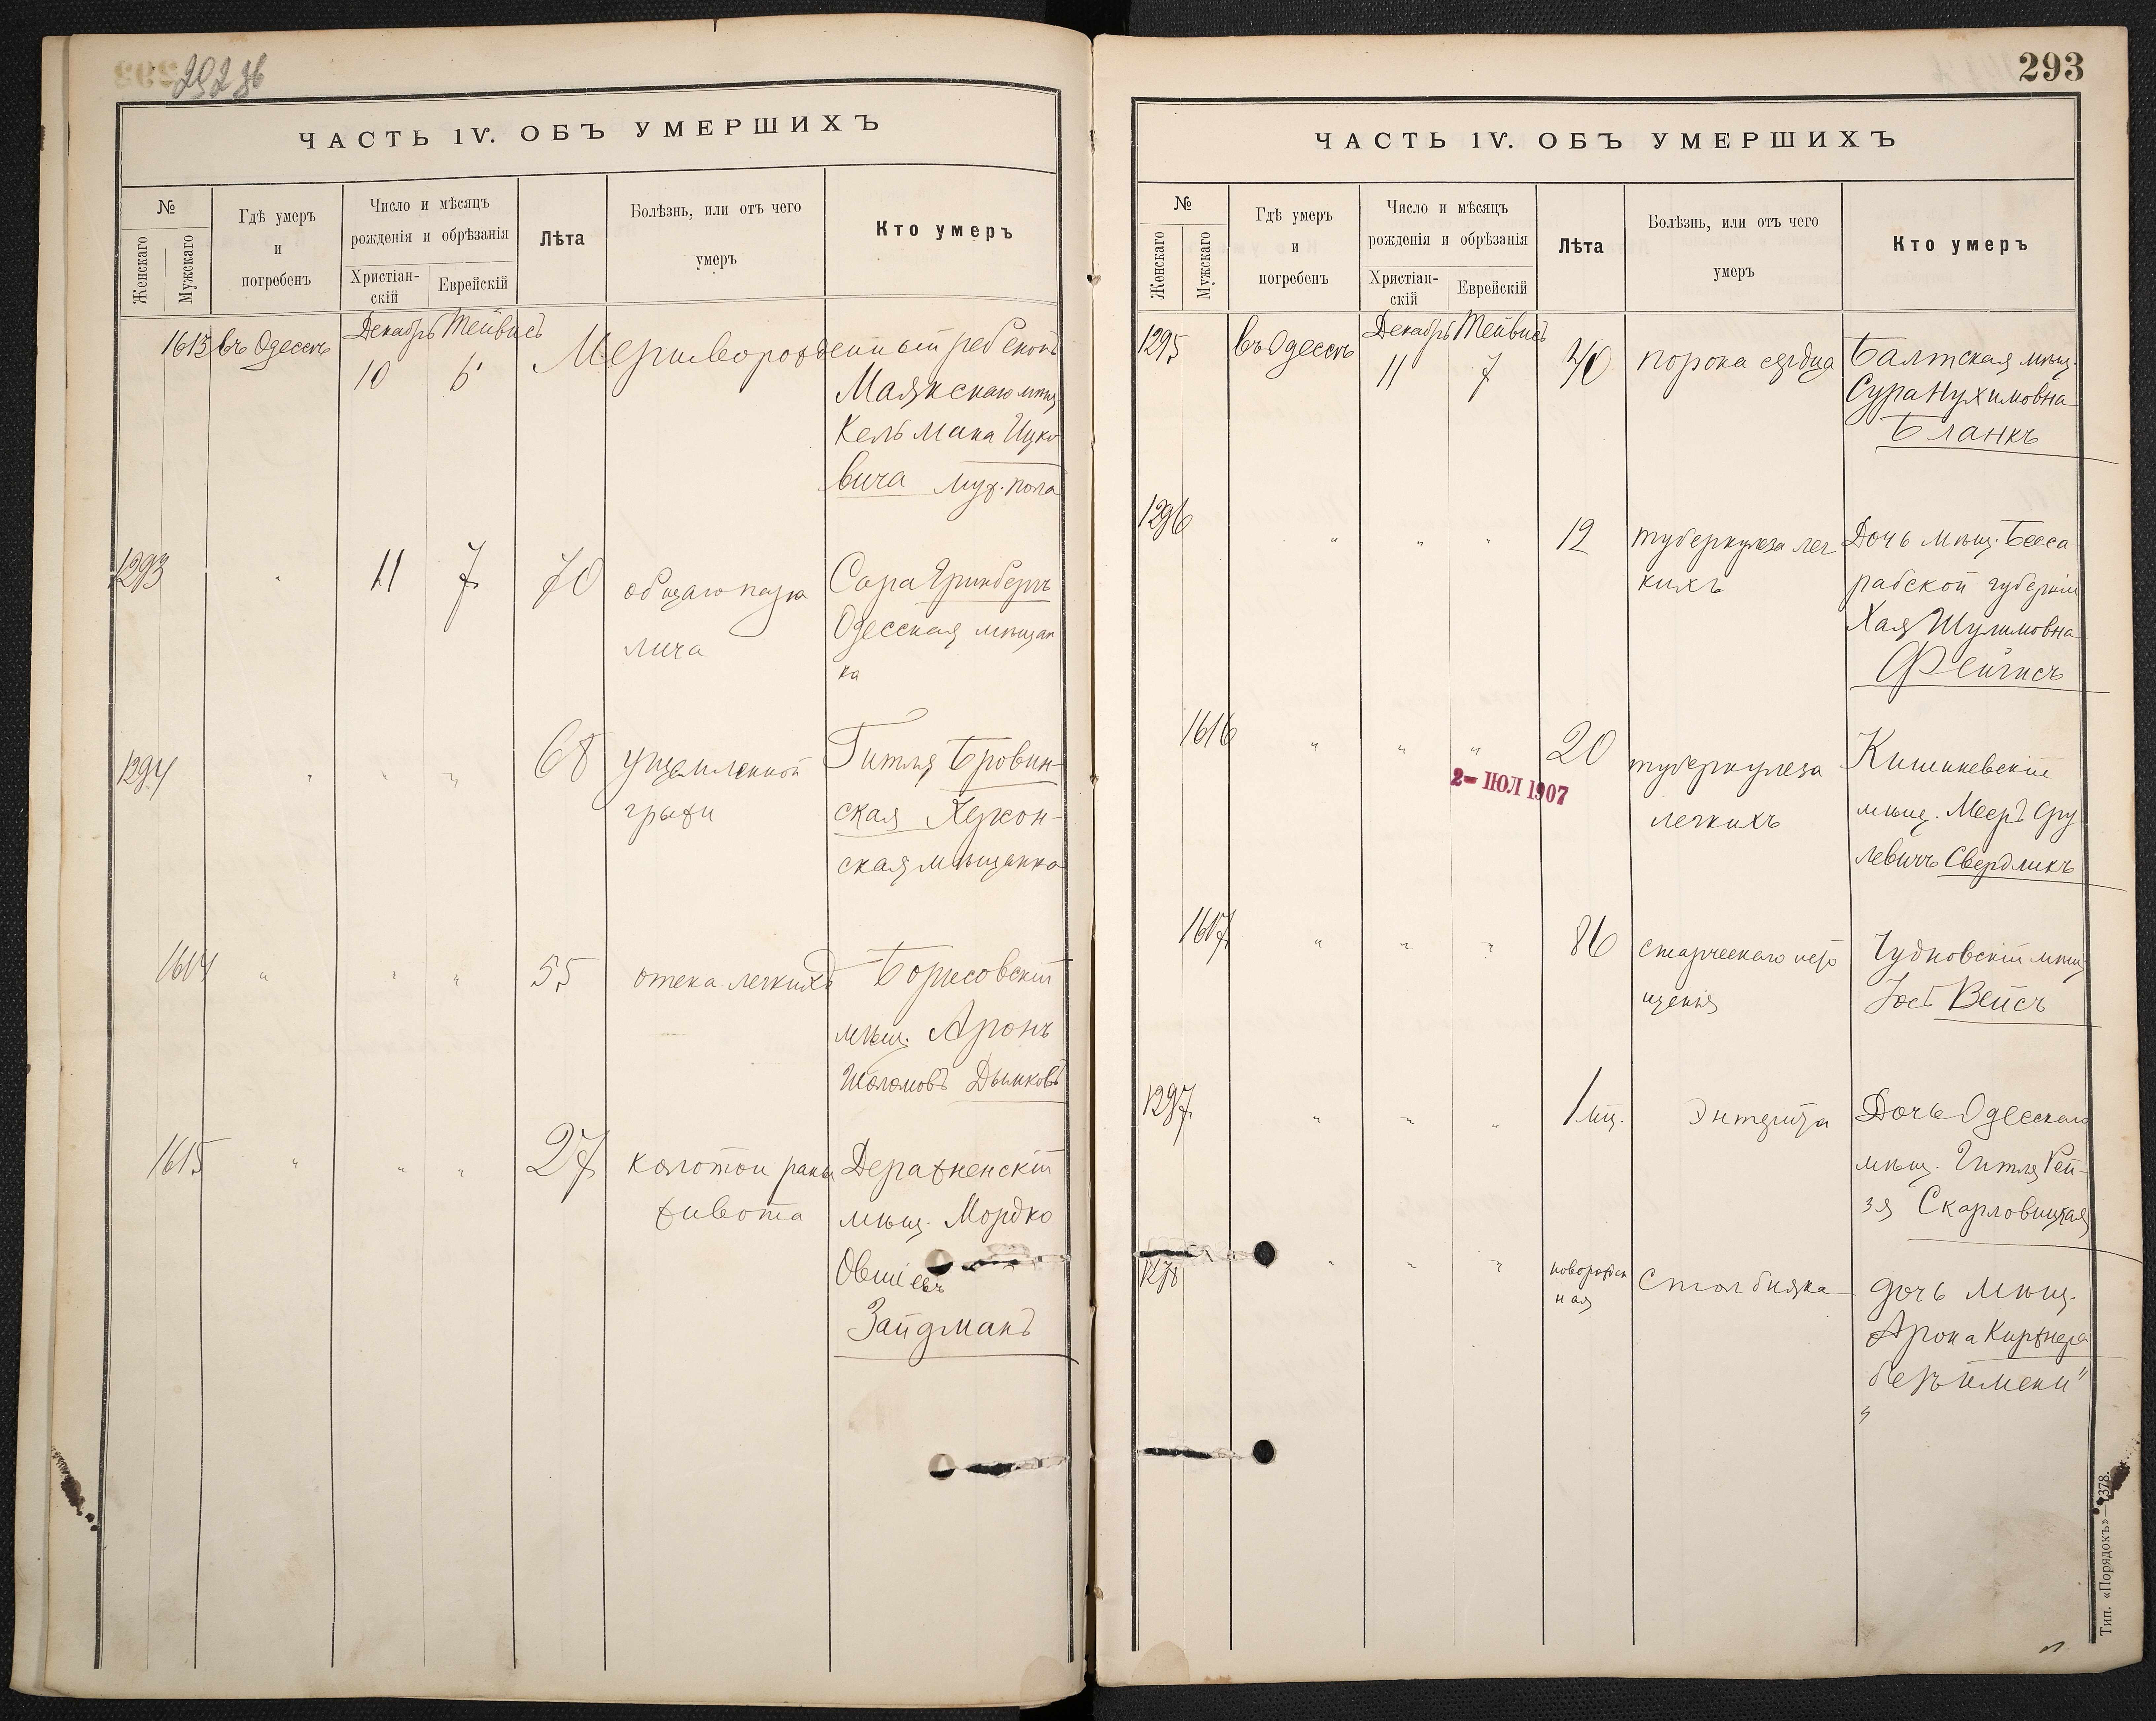 292 зв
ЧАСТЬ 1V. ОБЪ УМЕРШИХЪ
№
Женскаго
Мужскаго
Гдѣ умеръ
и
погребенъ
Число и мѣсяцъ
рожденія и обрѣзанія
Христіан-
скій
Еврейскій
Лѣта
Болѣзнь, или отъ чего
умеръ
Кто умеръ
1613 въ Одессѣ Декабрь Тейвисъ
10 6 Мертворожденный ребенокъ
Маякскаго мѣщ.
Кельмана Ицко
вича муж. пола
1293 " 11 7 70 общаго пара
лича
Сара Гринбергъ
Одесская мѣщан
ка
1294 " " " 68 ущемленной
грыжи
Гитля Бровин-
ская Херсон-
ская мѣщанка
1614 " " " 55 отека легкихъ
Борисовскій
мѣщ. Аронъ
Шоломовъ Дымковъ
1615 " " " 27 колотой раны
живота
Деражненскій
мѣщ. Мордко
Овшіевъ
Зайдманъ
293
ЧАСТЬ 1V. ОБЪ УМЕРШИХЪ
№
Женскаго
Мужскаго
Гдѣ умеръ
и
погребенъ
Число и мѣсяцъ
рожденія и обрѣзанія
Христіан-
скій
Еврейскій
Лѣта
Болѣзнь, или отъ чего
умеръ
Кто умеръ
1295 въ Одессѣ Декабрь Тейвисъ
11 7 40 порока сердца
Балтская мѣщ.
Сура Нухимовна
Бланкъ
1296 " " " 12 туберкулеза лег
кихъ
Дочь мѣщ. Бесса-
рабской губерніи
Хая Шулимовна
Фейгисъ
1616 " " " 20 туберкулеза
легкихъ
Кишиневскій
мѣщ. Мееръ Сру
левичъ Свердликъ
2- ІЮЛ 1907
1617 " " " 86 старческаго исто
щенія
Чудновскій мѣщ
Іось Вейсъ
1297 " " " 1 мц. Энтерита
Дочь Одесскаго
мѣщ. Гитля Рей-
зя Скарловицкая
" " " новорожден
ная
столбняка
дочь мѣщ.
Арона Киржнера
безъ имени"
"
Тип. «Порядокъ»—7378.